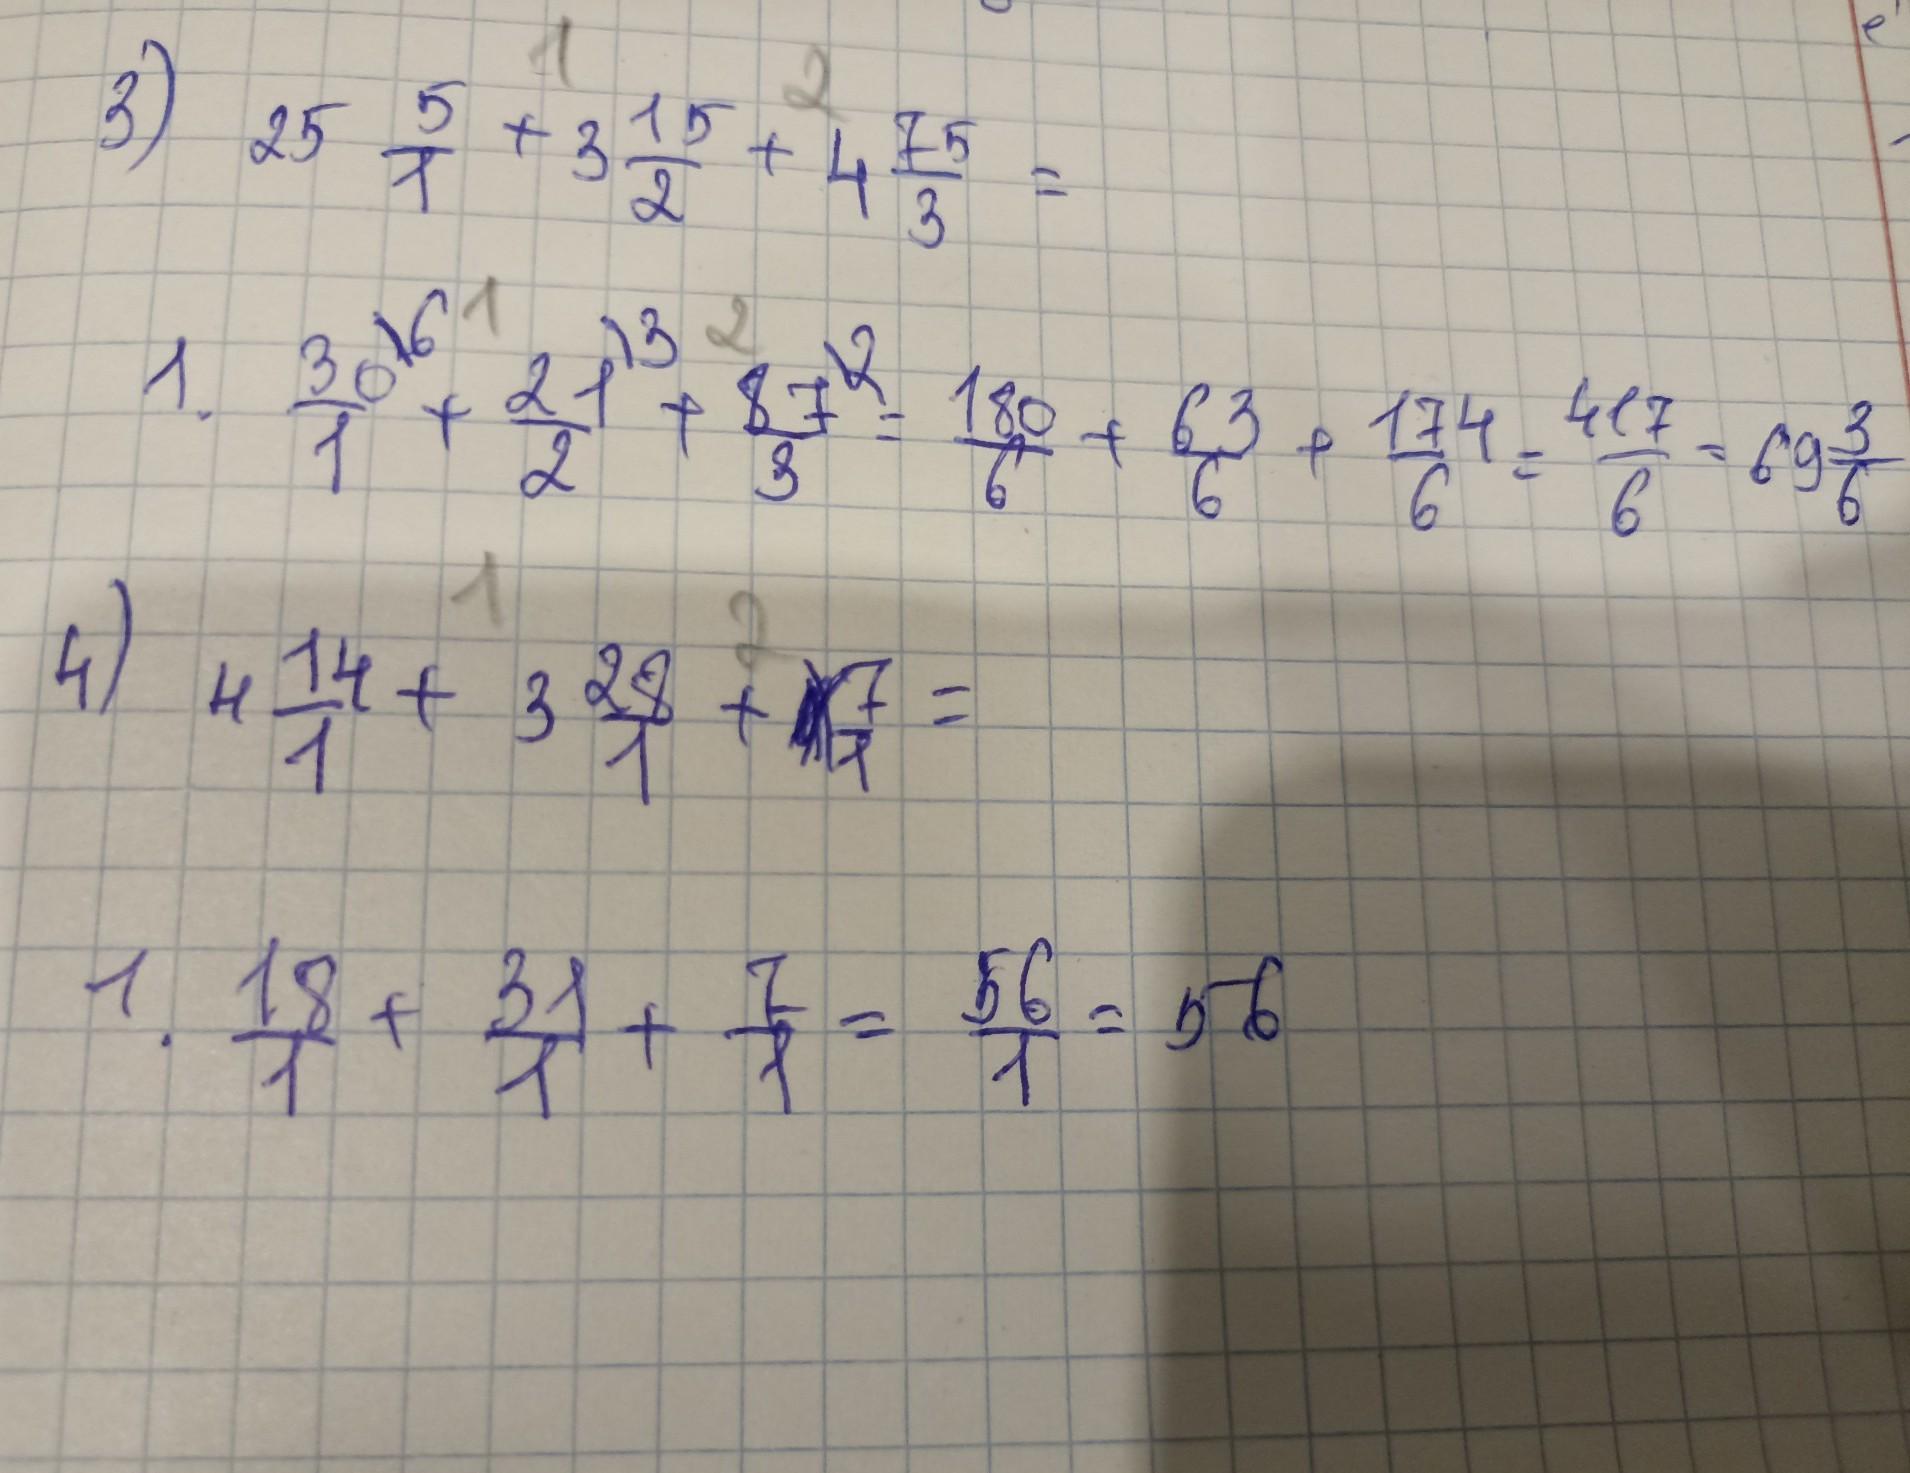 3) 25 5/1 + 3 15/2 + 4 75/3 =
1 2
1. 30/1 \6 + 21/2 \3 + 87/3 \2 = 180/6 + 63/6 + 174/6 = 417/6 = 69 3/6
1 2
4) 4 14/1 + 3 28/1 + 7/1 =
1 2
1. 18/1 + 31/1 + 7/1 = 56/1 = 56